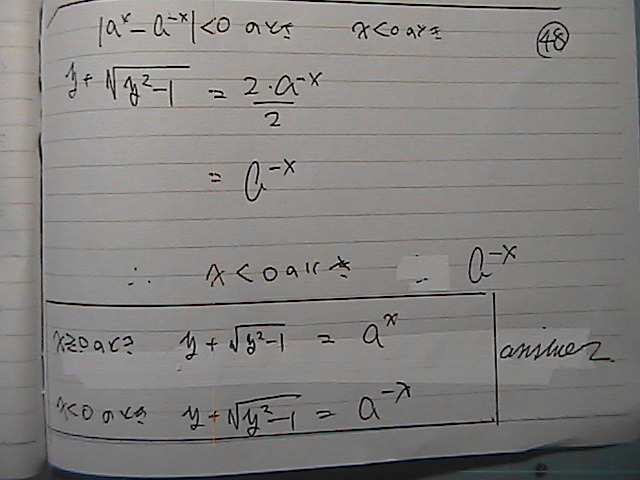 |aˣ − a⁻ˣ| < 0 のとき x < 0 のとき ㊽
y + √(y²−1) = 2·a⁻ˣ/2
= a⁻ˣ
∴ x < 0 のとき = a⁻ˣ
x ≧ 0 のとき y + √(y²−1) = aˣ
answer
x < 0 のとき y + √(y²−1) = a⁻ˣ